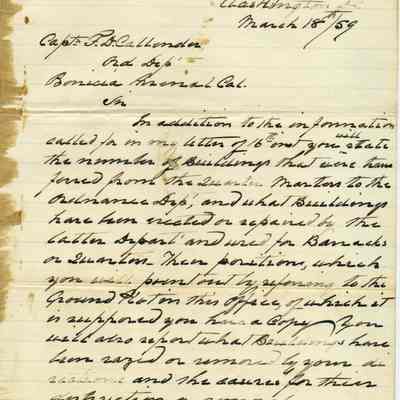 Washington
March 18th/59
Capt. F. D. Callender
Ord Dep't
Benicia Arsenal Cal.
Sir
In addition to the information
called for in my letter of 16th inst you will state
the number of Buildings that were trans
ferred from the Quarter Masters to the
Ordnance Dep, and what Buildings
have been erected or repaired by the
latter Depart and used for Barracks
or Quarters. Their positions, which
you will point out by refering to the
Ground Plot on this Office, of which it
is supposed you have a Copy. You
will also report what Buildings have
been razed or removed by your di
rections and the causes for their